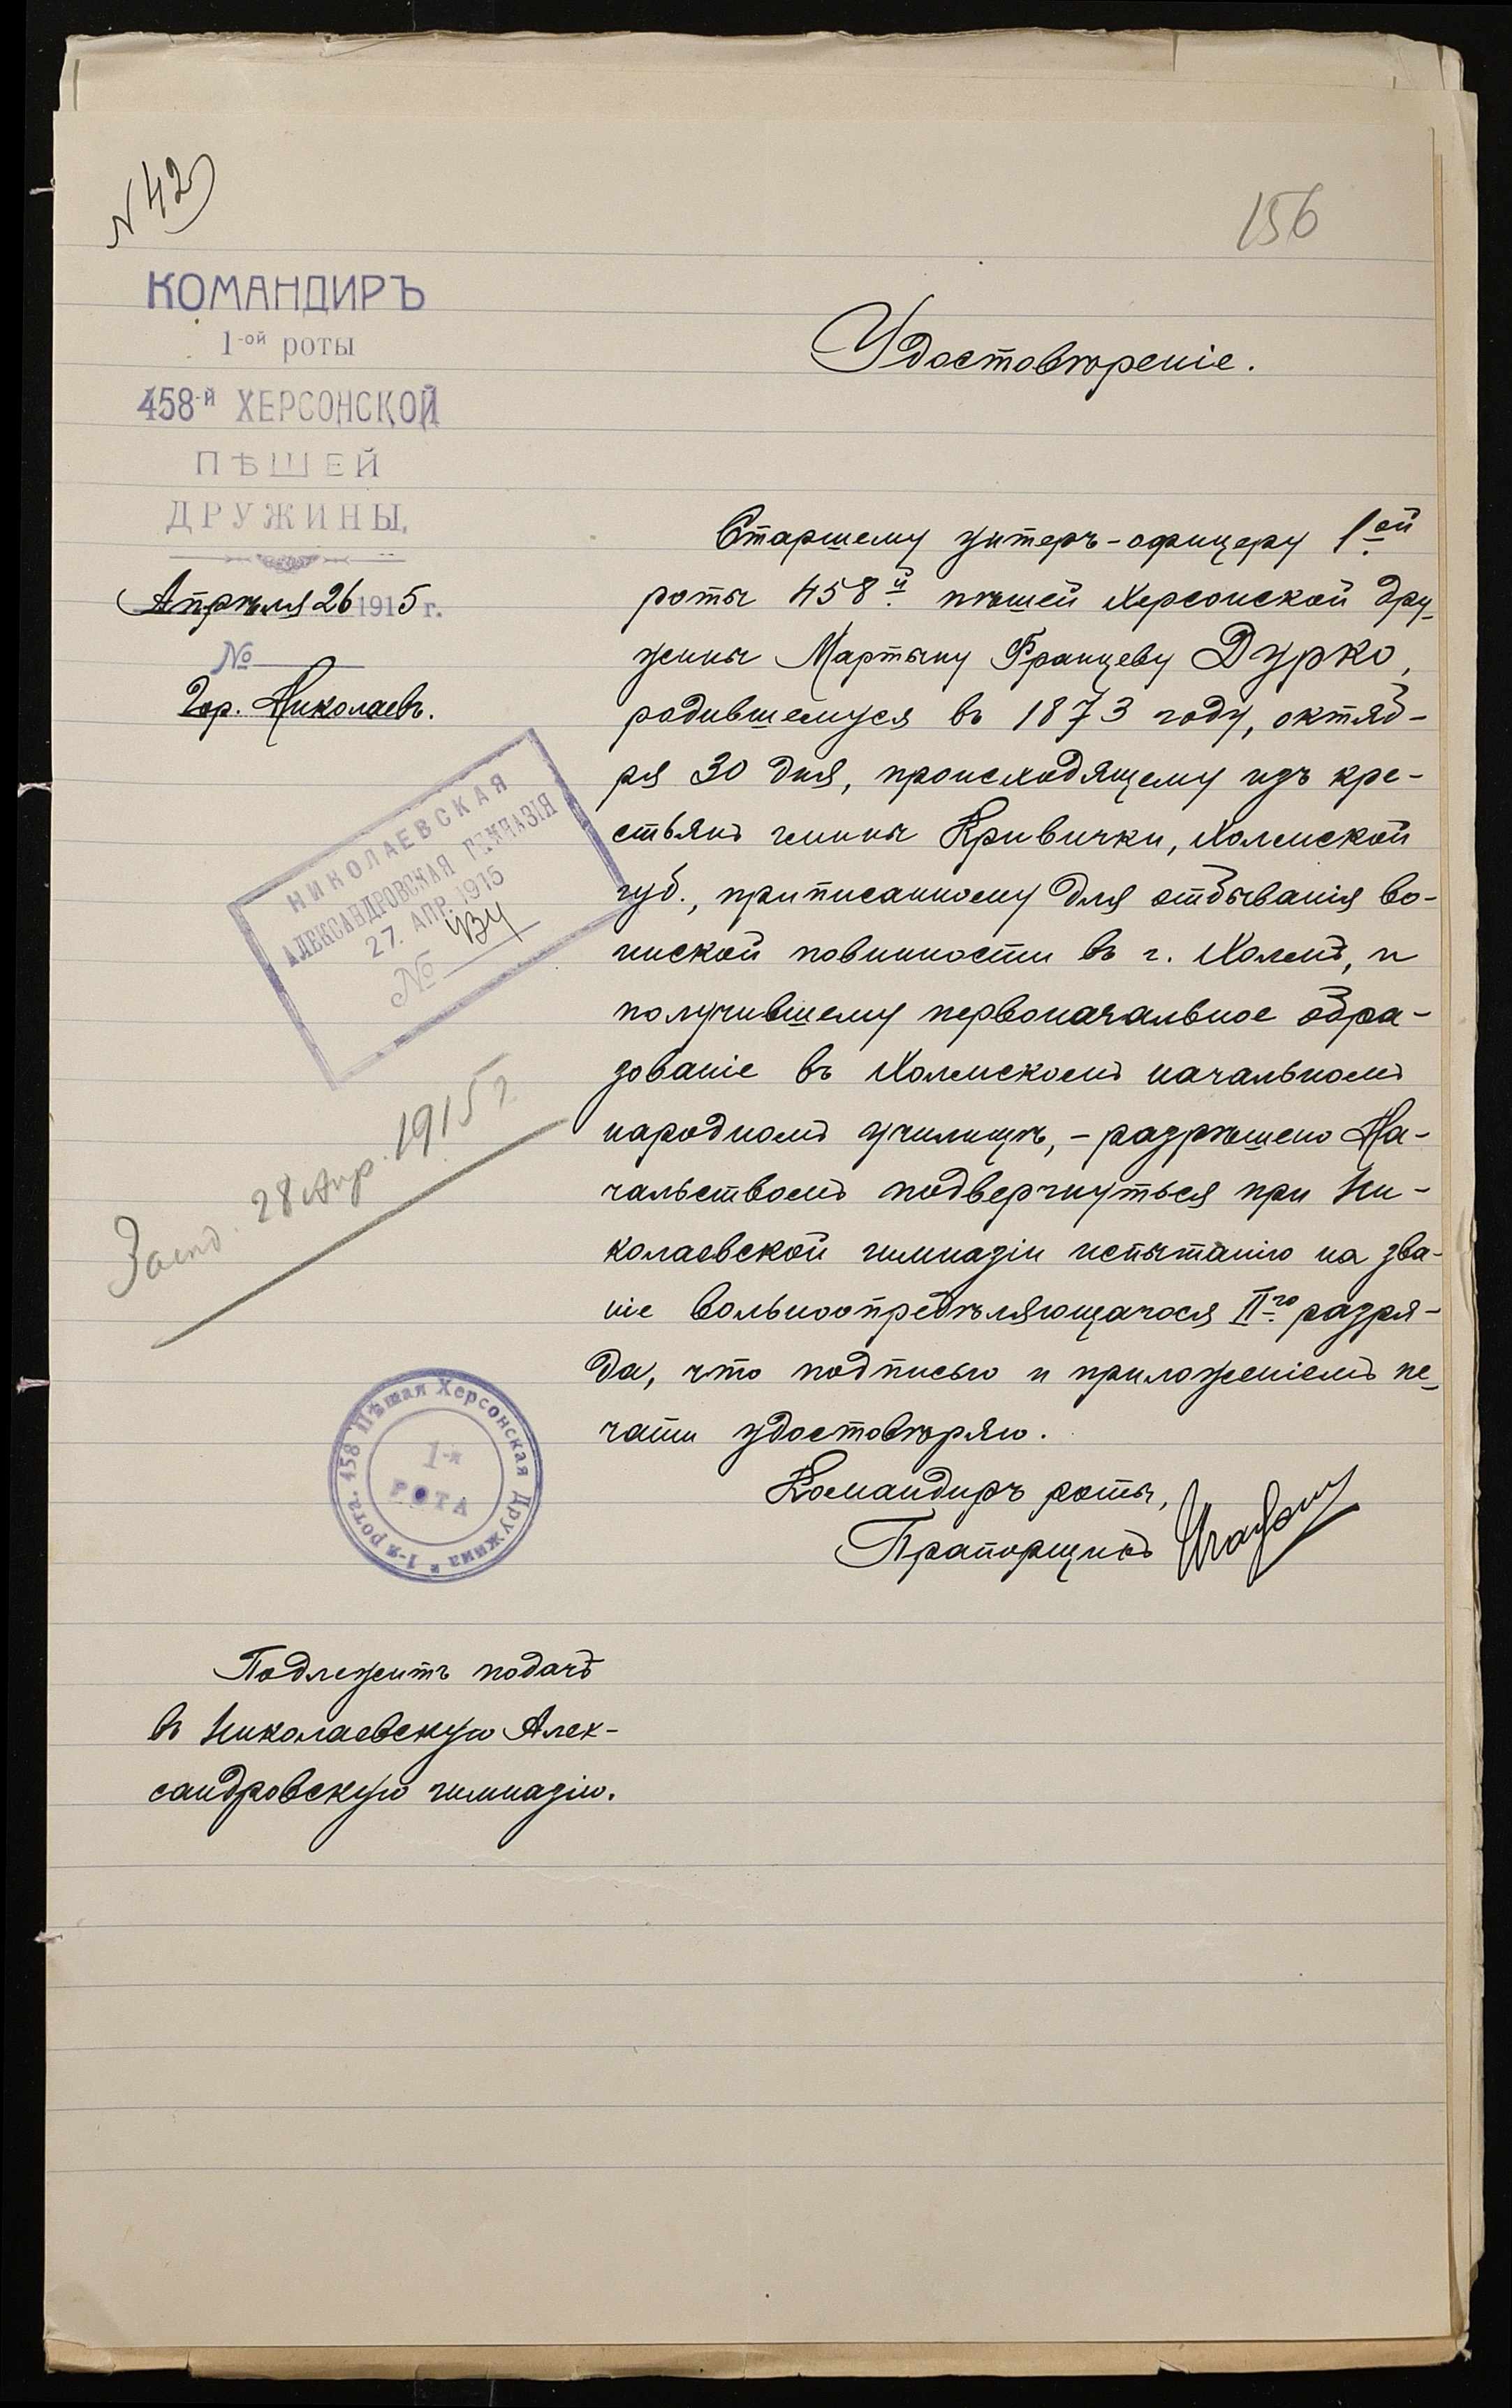 N 42
156
КОМАНДИРЪ
1-ой роты
458-й ХЕРСОНСКОЙ
ПѢШЕЙ
ДРУЖИНЫ.
Апрѣля 26 1915 г.
№
Гор. Николаевъ.
НИКОЛАЕВСКАЯ
АЛЕКСАНДРОВСКАЯ ГИМНАЗІЯ
27. АПР. 1915
№
28 Апр. 1915 г.
Удостовѣреніе.
Старшему унтеръ-офицеру 1ой
роты 458й пѣшей Херсонской дру-
жины Мартыну Францеву Дурко,
родившемуся въ 1873 году, октяб-
ря 30 дня, происходящему изъ кре-
стьянъ гмины Кривички, Холмской
губ., приписанному для отбыванія во-
инской повинности въ г. Холмѣ, и
получившему первоначальное обра-
зованіе въ Холмскомъ начальномъ
народномъ училищѣ, - разрѣшено На-
чальствомъ подвергнуться при Ни-
колаевской гимназіи испытанію на зва-
ніе вольноопредѣляющагося II-го разря-
да, что подписью и приложеніемъ пе-
чати удостовѣряю.
Командиръ роты,
Прапорщикъ
458 Пѣшая Херсонская Дружина * 1-я рота.
1-я
РОТА
Подлежитъ подачѣ
въ Николаевскую Алек-
сандровскую гимназію.